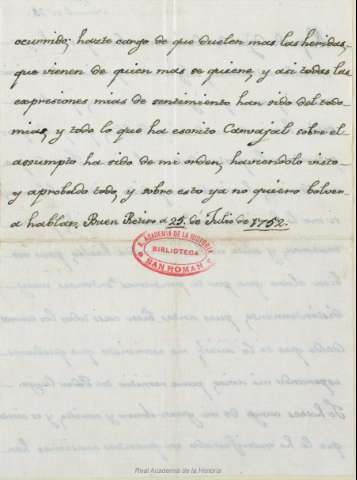 ocurrido; hazte cargo de que duelen mas las heridas,
que vienen de quien mas se quiere, y asi todas las
expresiones mias de sentimiento han sido del todo
mias, y todo lo que ha escrito Carvajal sobre el
assumpto ha sido de mi orden, haviendolo visto
y aprobado todo, y sobre esto ya no quiero bolver
a hablar. Buen Retiro a 25. de Julio de 1752.
R. ACADEMIA DE LA HISTORIA
BIBLIOTECA
SAN ROMAN
Real Academia de la Historia